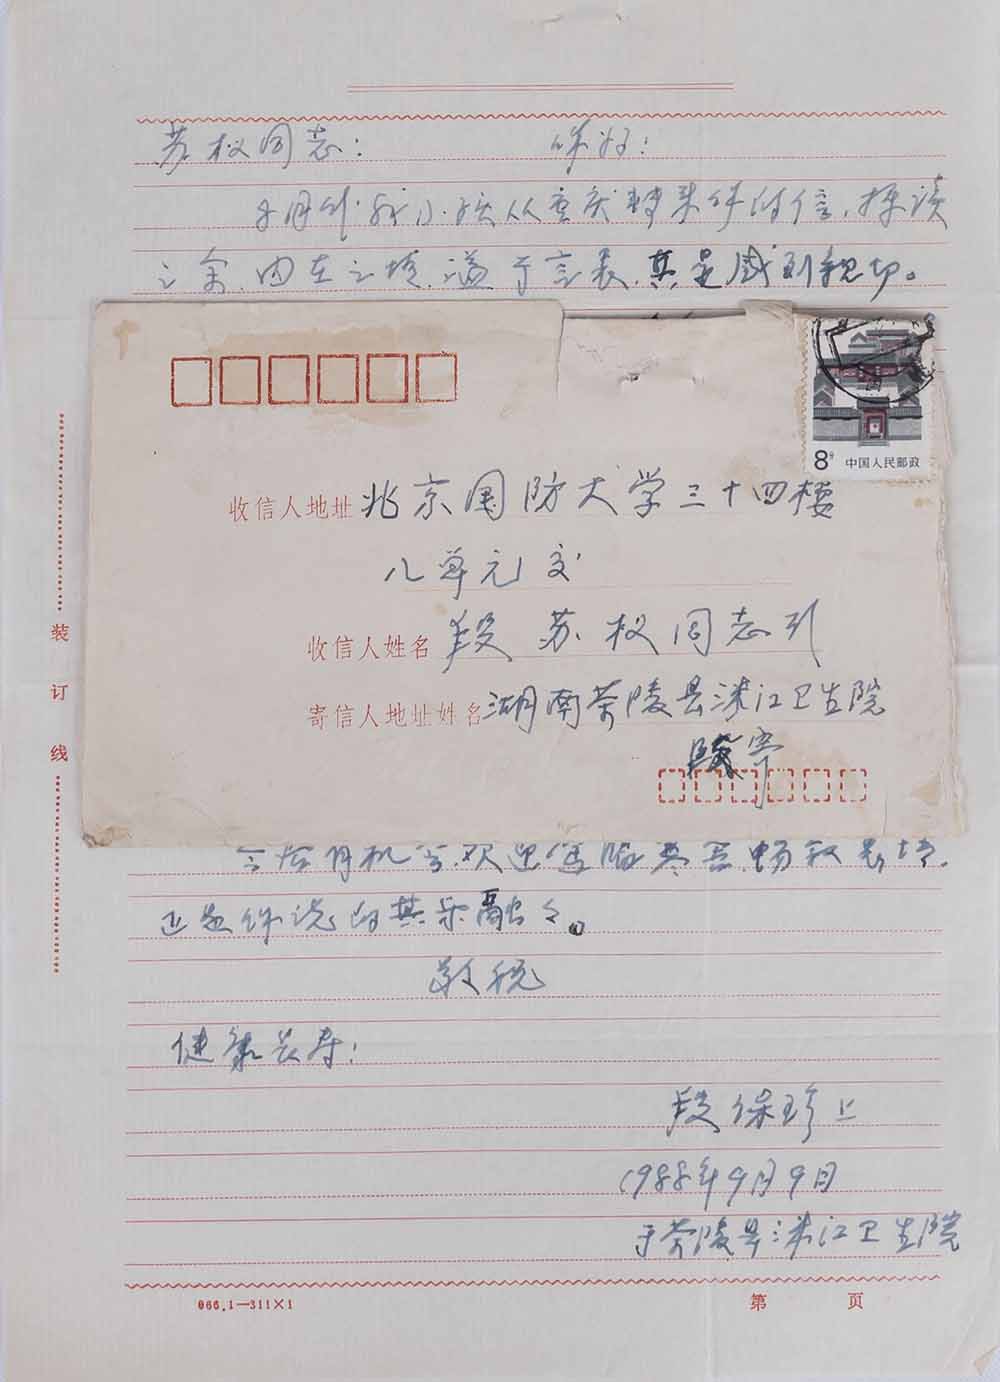 苏权同志： 你好！
月外，我小孩从重庆转来你的信，拜读
之余，内在之情，溢于言表，甚是感到亲切。
8分 中国人民邮政
收信人地址 北京国防大学三十四楼
八单元交
收信人姓名 段苏权同志 引
寄信人地址姓名 湖南茶陵县洣江卫生院
段寄
装订线
今后有机会，欢迎您临寒舍，畅叙衷情，
正如你说的其乐融々。
敬祝
健康长寿！
段保珍上
1988年9月9日
于茶陵县洣江卫生院
066.1—311×1 第 页